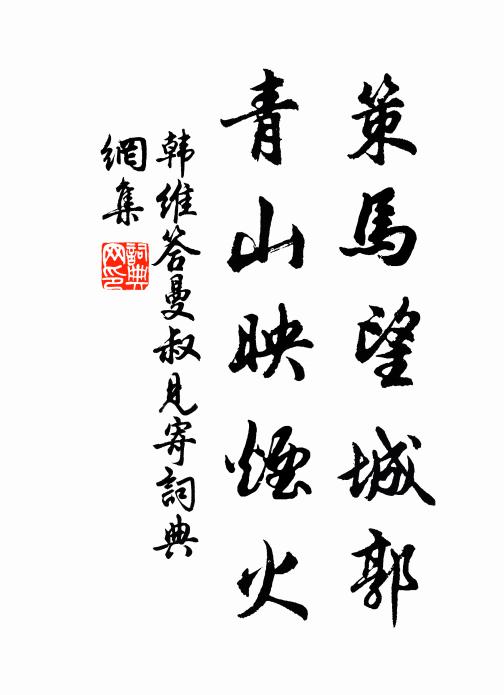 策馬望城郭
青山映煙火
韩维答曼叔見寄詞典
網集
詞典
网印